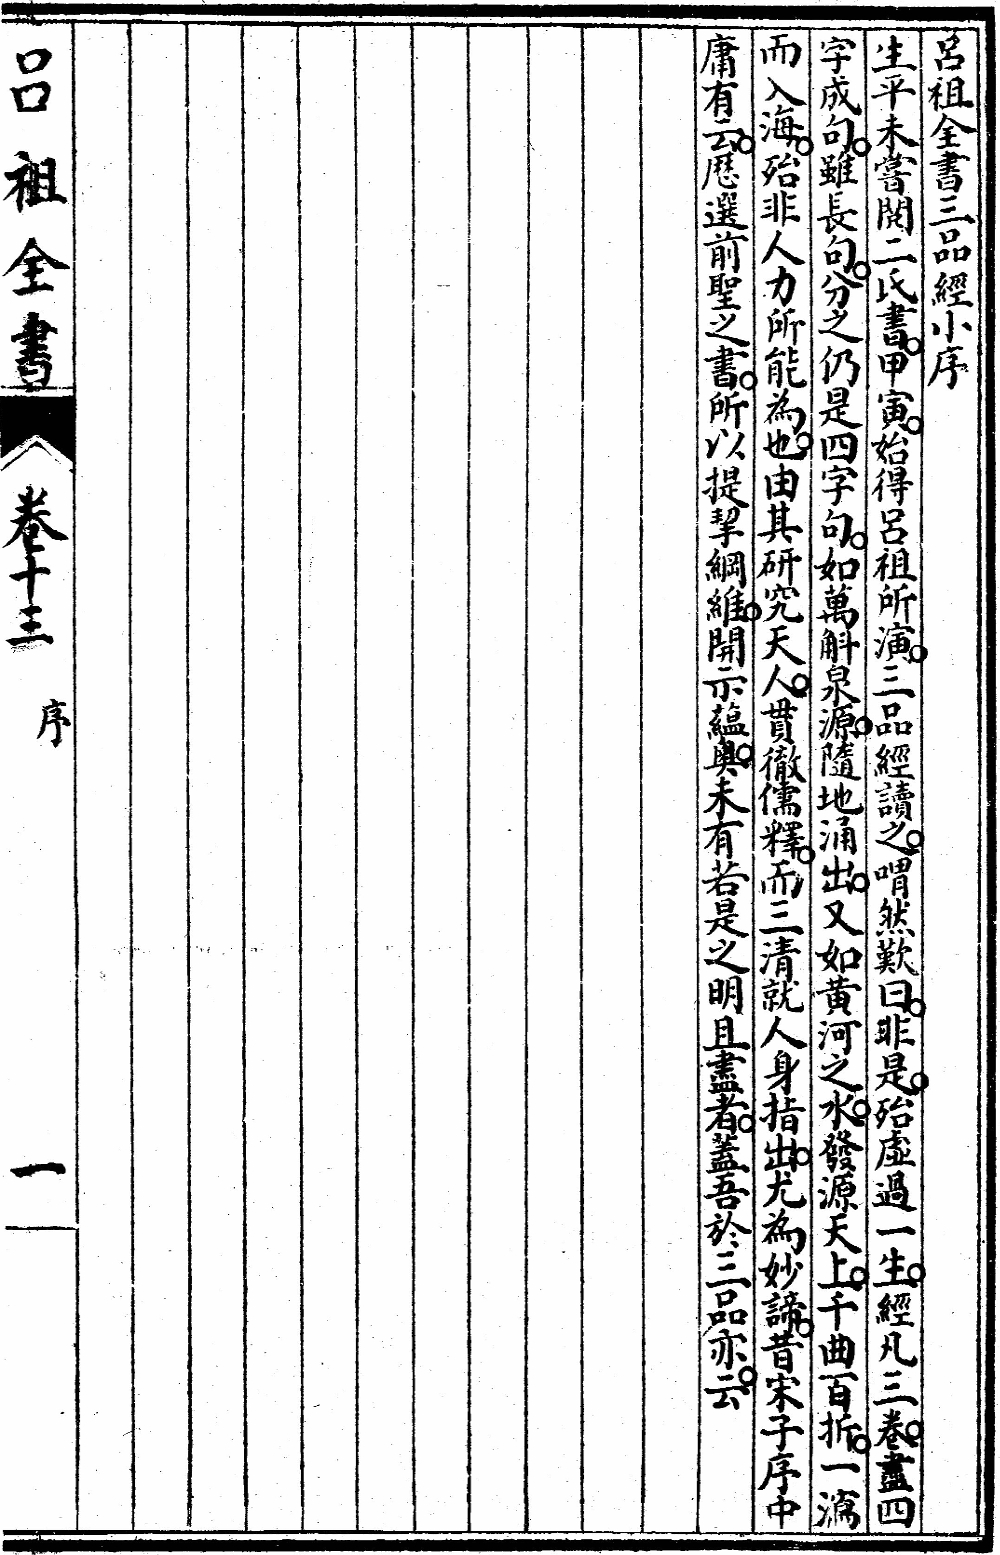 呂祖全書三品經小序
生平未嘗閱二氏書。甲寅。始得呂祖所演。三品經讀之。喟然歎曰。非是。殆虛過一生。經凡三卷。盡四
字成句。雖長句。分之仍是四字句。如萬斛泉源。隨地涌出。又如黃河之水。發源天上。千曲百折。一瀉
而入海。殆非人力所能為也。由其研究天人。貫徹儒釋。而三清就人身指出。尤為妙諦。昔宋子序中
庸有云。歷選前聖之書。所以提挈綱維。開示蘊奧。未有若是之明且盡者。蓋吾於三品亦云。
呂祖全書
卷十三
序
一